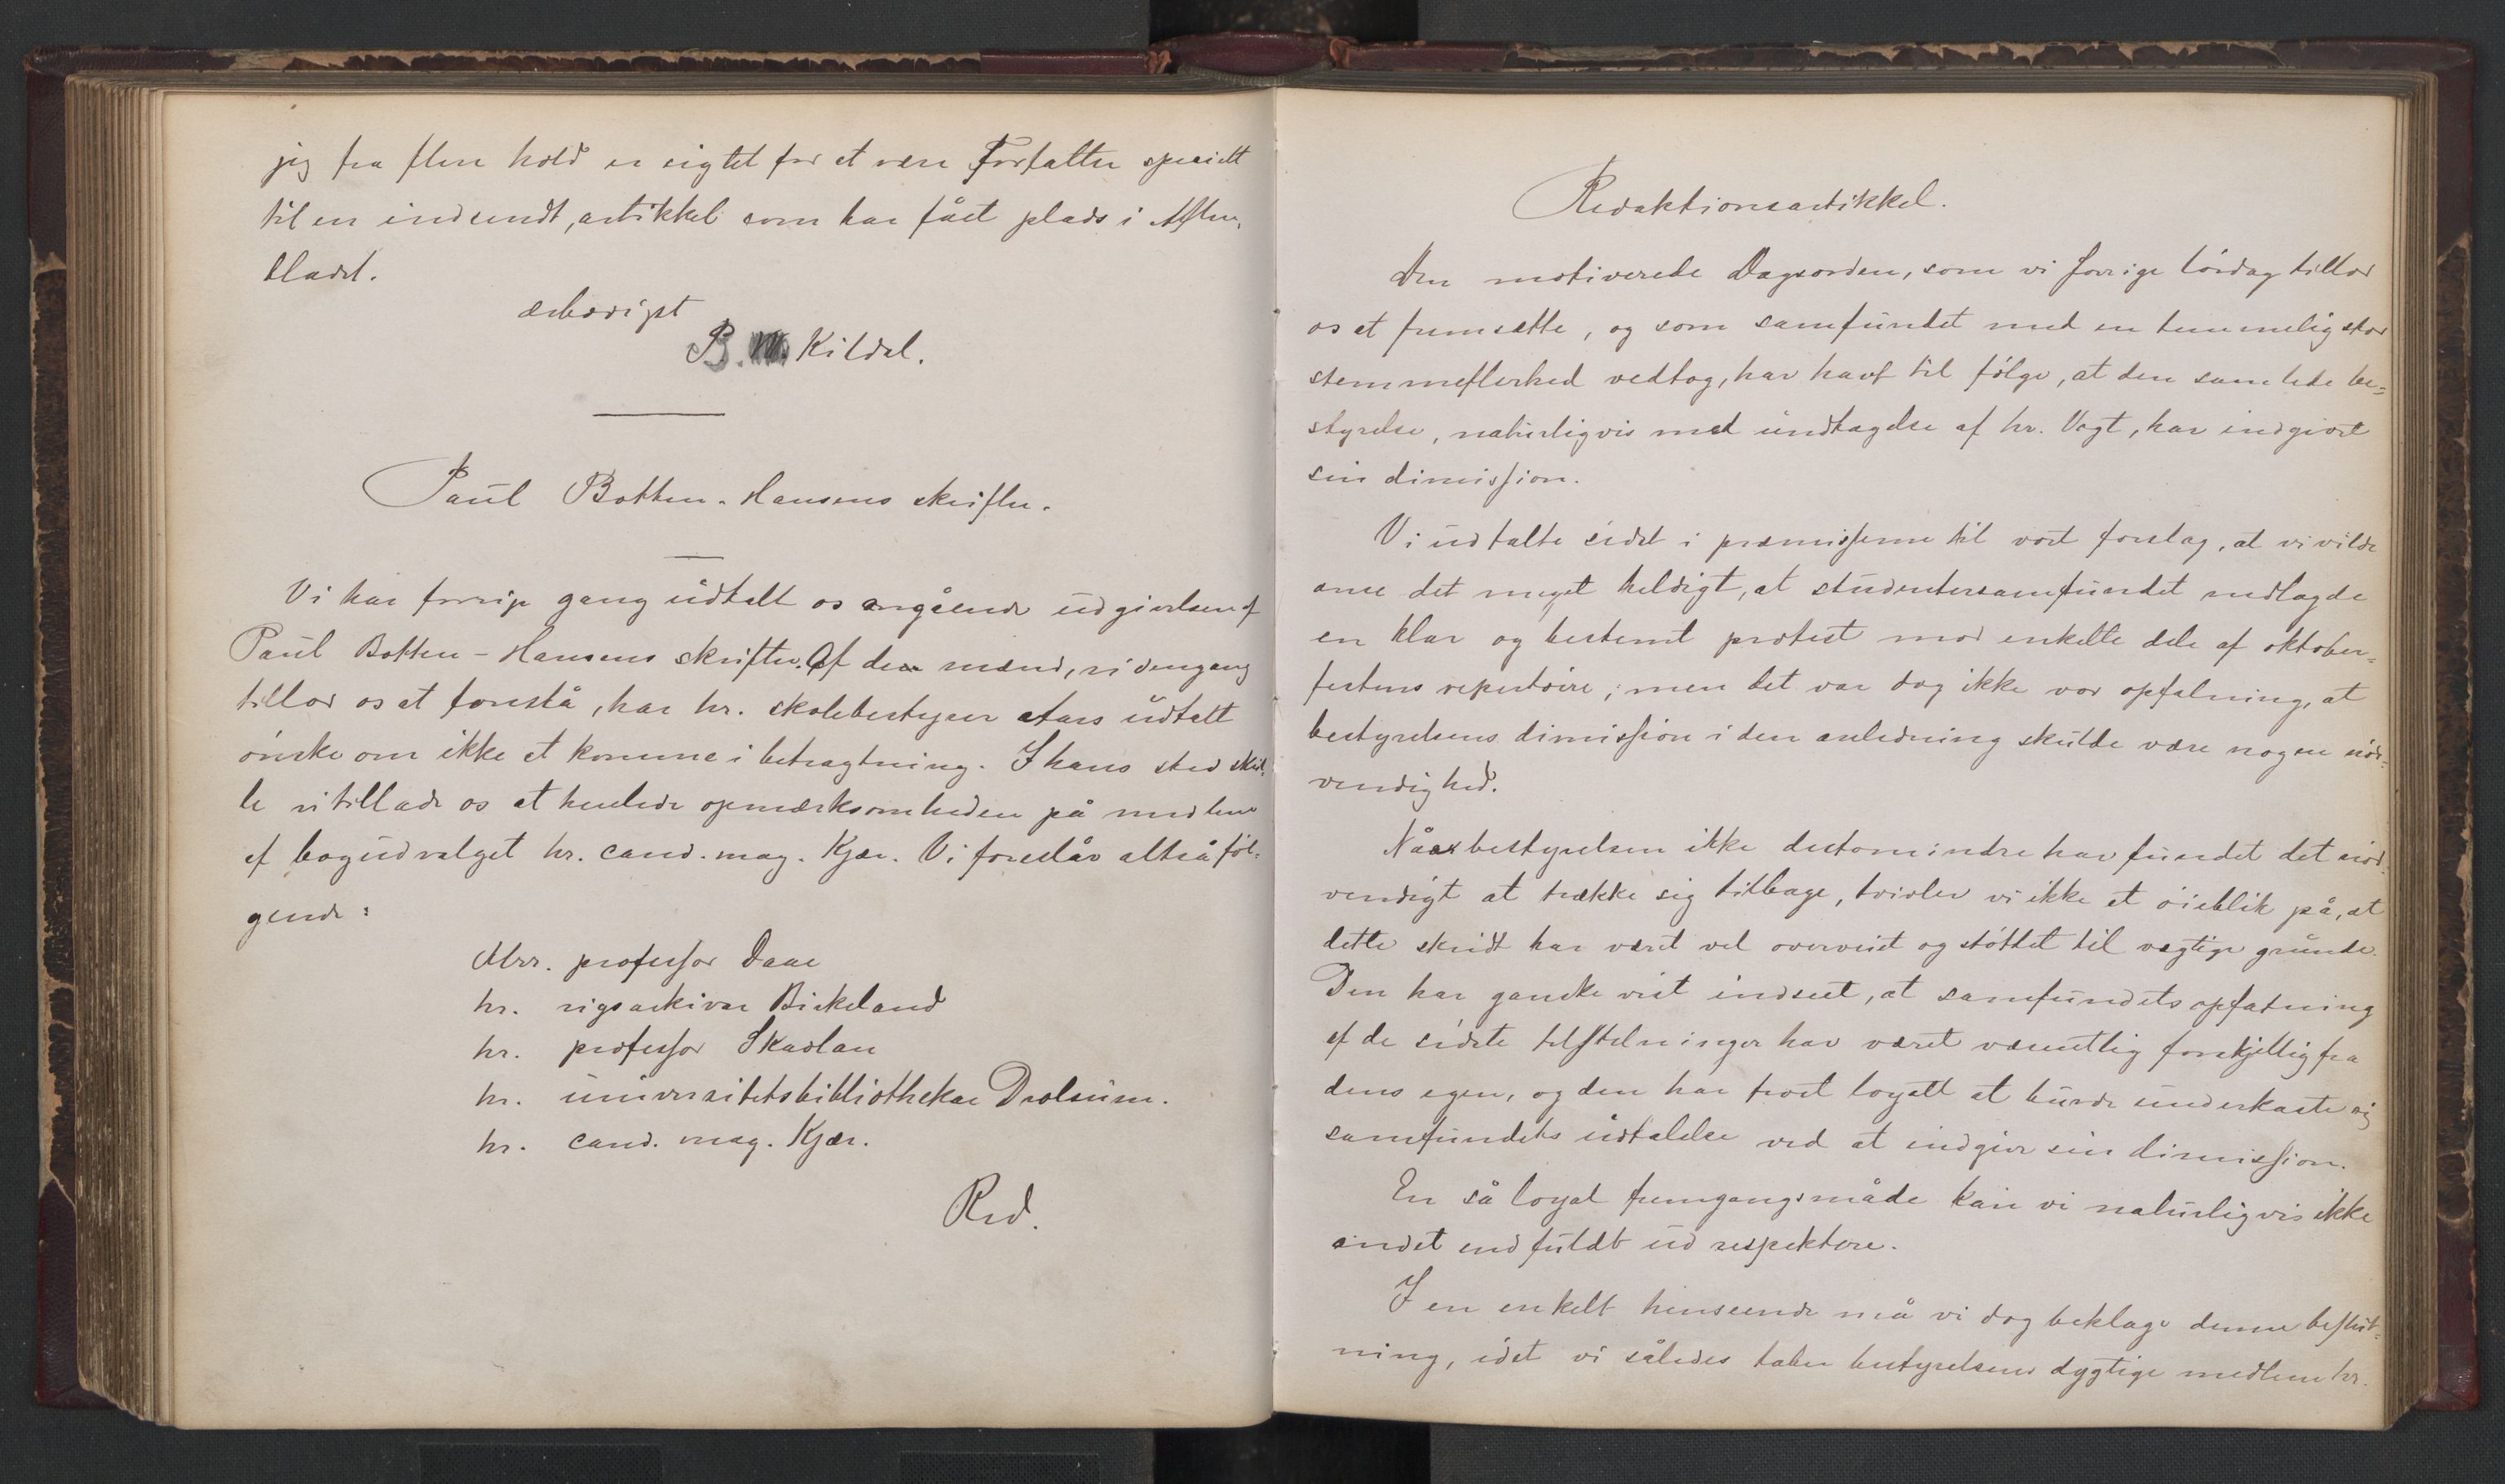 jeg fra flere hold er sigtet for at være Forfatter specielt
til en indsendt, artikkel som har fået plads i Aften-
bladet.
ærbødigst
B. M. Kildal.
Paul Botten-Hansens skrifter.
Vi har forrige gang udtalt os angående udgivelsen af
Paul Botten-Hansens skrifter. Af de mænd, vi dengang
tillod os at foreslå, har hr. skolebestyrer Aars udtalt
ønske om ikke at komme i betragtning. I hans sted skul-
le vi tillade os at henlede opmærksomheden på medlem
af bogudvalget hr. cand. mag. Kjær. Vi foreslår altså føl-
gende:
Hrr. professor Daae
hr. rigsarkivar Birkeland
hr. professor Skavlan
hr. universitetsbibliothekar Drolsum.
hr. cand. mag. Kjær.
Red.
Redaktionsartikkel.
Den motiverede Dagsorden, som vi forrige lørdag tillod
os at fremsætte, og som samfundet med en temmelig stor
stemmeflerhed vedtog, har havt til følge, at den samlede be-
styrelse, naturligvis med undtagelse af hr. Vogt, har indgivet
sin dimission.
Vi udtalte sidst i præmisserne til vort forslag, at vi vilde
anse det meget heldigt, at studentersamfundet nedlagde
en klar og bestemt protest mod enkelte dele af oktober-
festens repertoire; men det var dog ikke vor opfatning, at
bestyrelsens dimission i den anledning skulde være nogen nød-
vendighed.
Når bestyrelsen ikke destomindre har fundet det nød-
vendigt at trække sig tilbage, tvivler vi ikke et øieblik på, at
dette skridt har været vel overveiet og støttet til vægtige grunde.
Den har ganske vist indseet, at samfundets opfatning
af de sidste tilstelninger har været væsentlig forskjellig fra
dens egen, og den har troet loyalt at burde underkaste sig
samfundets udtalelse ved at indgive sin dimission.
En så loyal fremgangsmåde kan vi naturligvis ikke
andet end fuldt ud respektere.
I en enkelt henseende må vi dog beklage denne beslut-
ning, idet vi således taber bestyrelsens dygtige medlem hr.